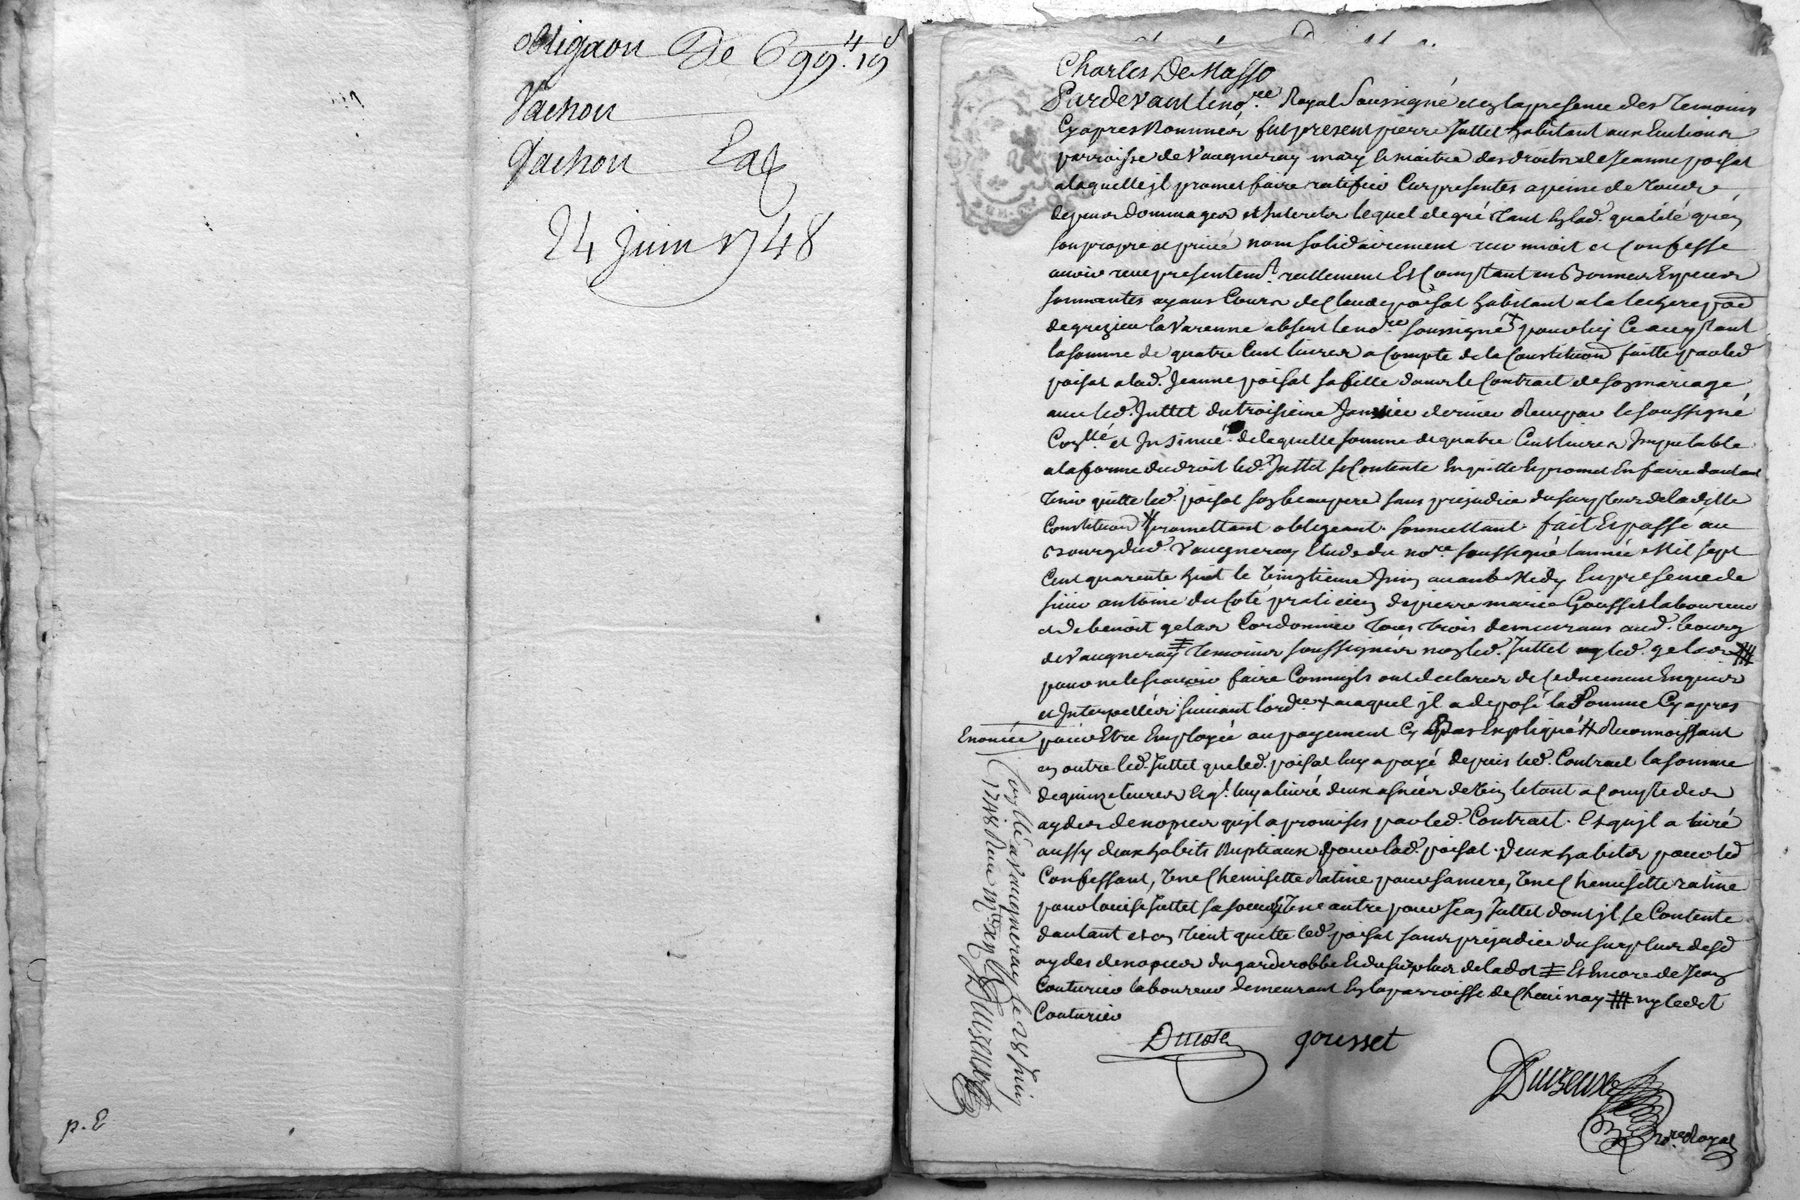 obligaon De 699.ᴸ 19ˢ
Vachon
Vachon Lal
24 Juin 1748
p. E
Charles De Masso
Pardevant le no.re Royal Soussigné et en la presence des Temoins
Cyapres Nommés fut present pierre Juttet habitant aux
parroisse de Vaugneray mary & maitre des droits de Jeanne poisat
a laquelle jl promet faire ratifier Ces presentes a peine de tous
depens dommages et Interets lequel de gré tant en lad. qualité qu'en
son propre et privé nom solidairement reconnoit et Confesse
avoir reçu presentem.t reellement Et Comptant en Bonnes Especes
sonnantes ayans Cours de Claude poisat habitant a la lechere psse
de grezieu la Varenne absent le no.re soussigné + pour luy Ce acceptant
la somme de quatre Cent livres a Compte de la Constitution faitte par led
poisat a lad. Jeanne poisat sa fille dans le Contract de son mariage
avec led. Juttet du troisieme Janvier dernier Reçu par le soussigné
Con.llé et Insinué de laquelle somme de quatre Cent livres Imputable
a la forme du droit led. Juttet se Contente En quitte Et promet En faire d'autant
tenir quitte led. poisat son beaupere sans prejudice du surplus de ladette
Constitution # promettant obligeant soumettant fait Et passé au
Bourg dud. Vaugneray Etude du no.re soussigné l'année Mil sept
Cent quarente huit le vingtieme Juin avant Midy En presence de
sieur antoine du Coté praticien de pierre marie Gousset laboureur
et de benoit gelas Cordonnier tous trois demeurans aud. bourg
de Vaugneray ‡ temoins soussignés non led. Juttet ny led. gelas #
pour ne le sçavoir faire Comm'ils ont declarés de Ce duement Enquis
et Interpellés suivant l'ord.ce + auquel jl a deposé la Somme Cyapres
Enoncée pour Etre Employée au payement Cy Bas Expliqué # Reconnoissant
en outre led. Juttet que led. poisat luy a payé depuis led. Contract la somme
de quinze livres Et q.l luy a livré deux asnées de vin le tout a Compte des
aydes de nopces qu'jl a promises par led. Contract. Et qu'jl a livré
aussy deux habits Nuptiaux pour lad. poisat. deux habits pour led
Confessant, Une Chemisette Ratine pour sa mere, Une Chemisette ratine
pour louise Juttet sa soeur, Une autre pour Jean Juttet dont jl se Contente
d'autant et en tient quitte led. poisat sans prejudice du surplus desd
aydes de nopces du garderobbe Et du surplus de la dot ‡ Et Encore de Jean
Couturier laboureur demeurant En la parroisse de Chevinay # ny ledit
Couturier
Ducoté gousset
no.re Royal
Con.llé a Vaugneray le 28 Juin
1748 Reçu